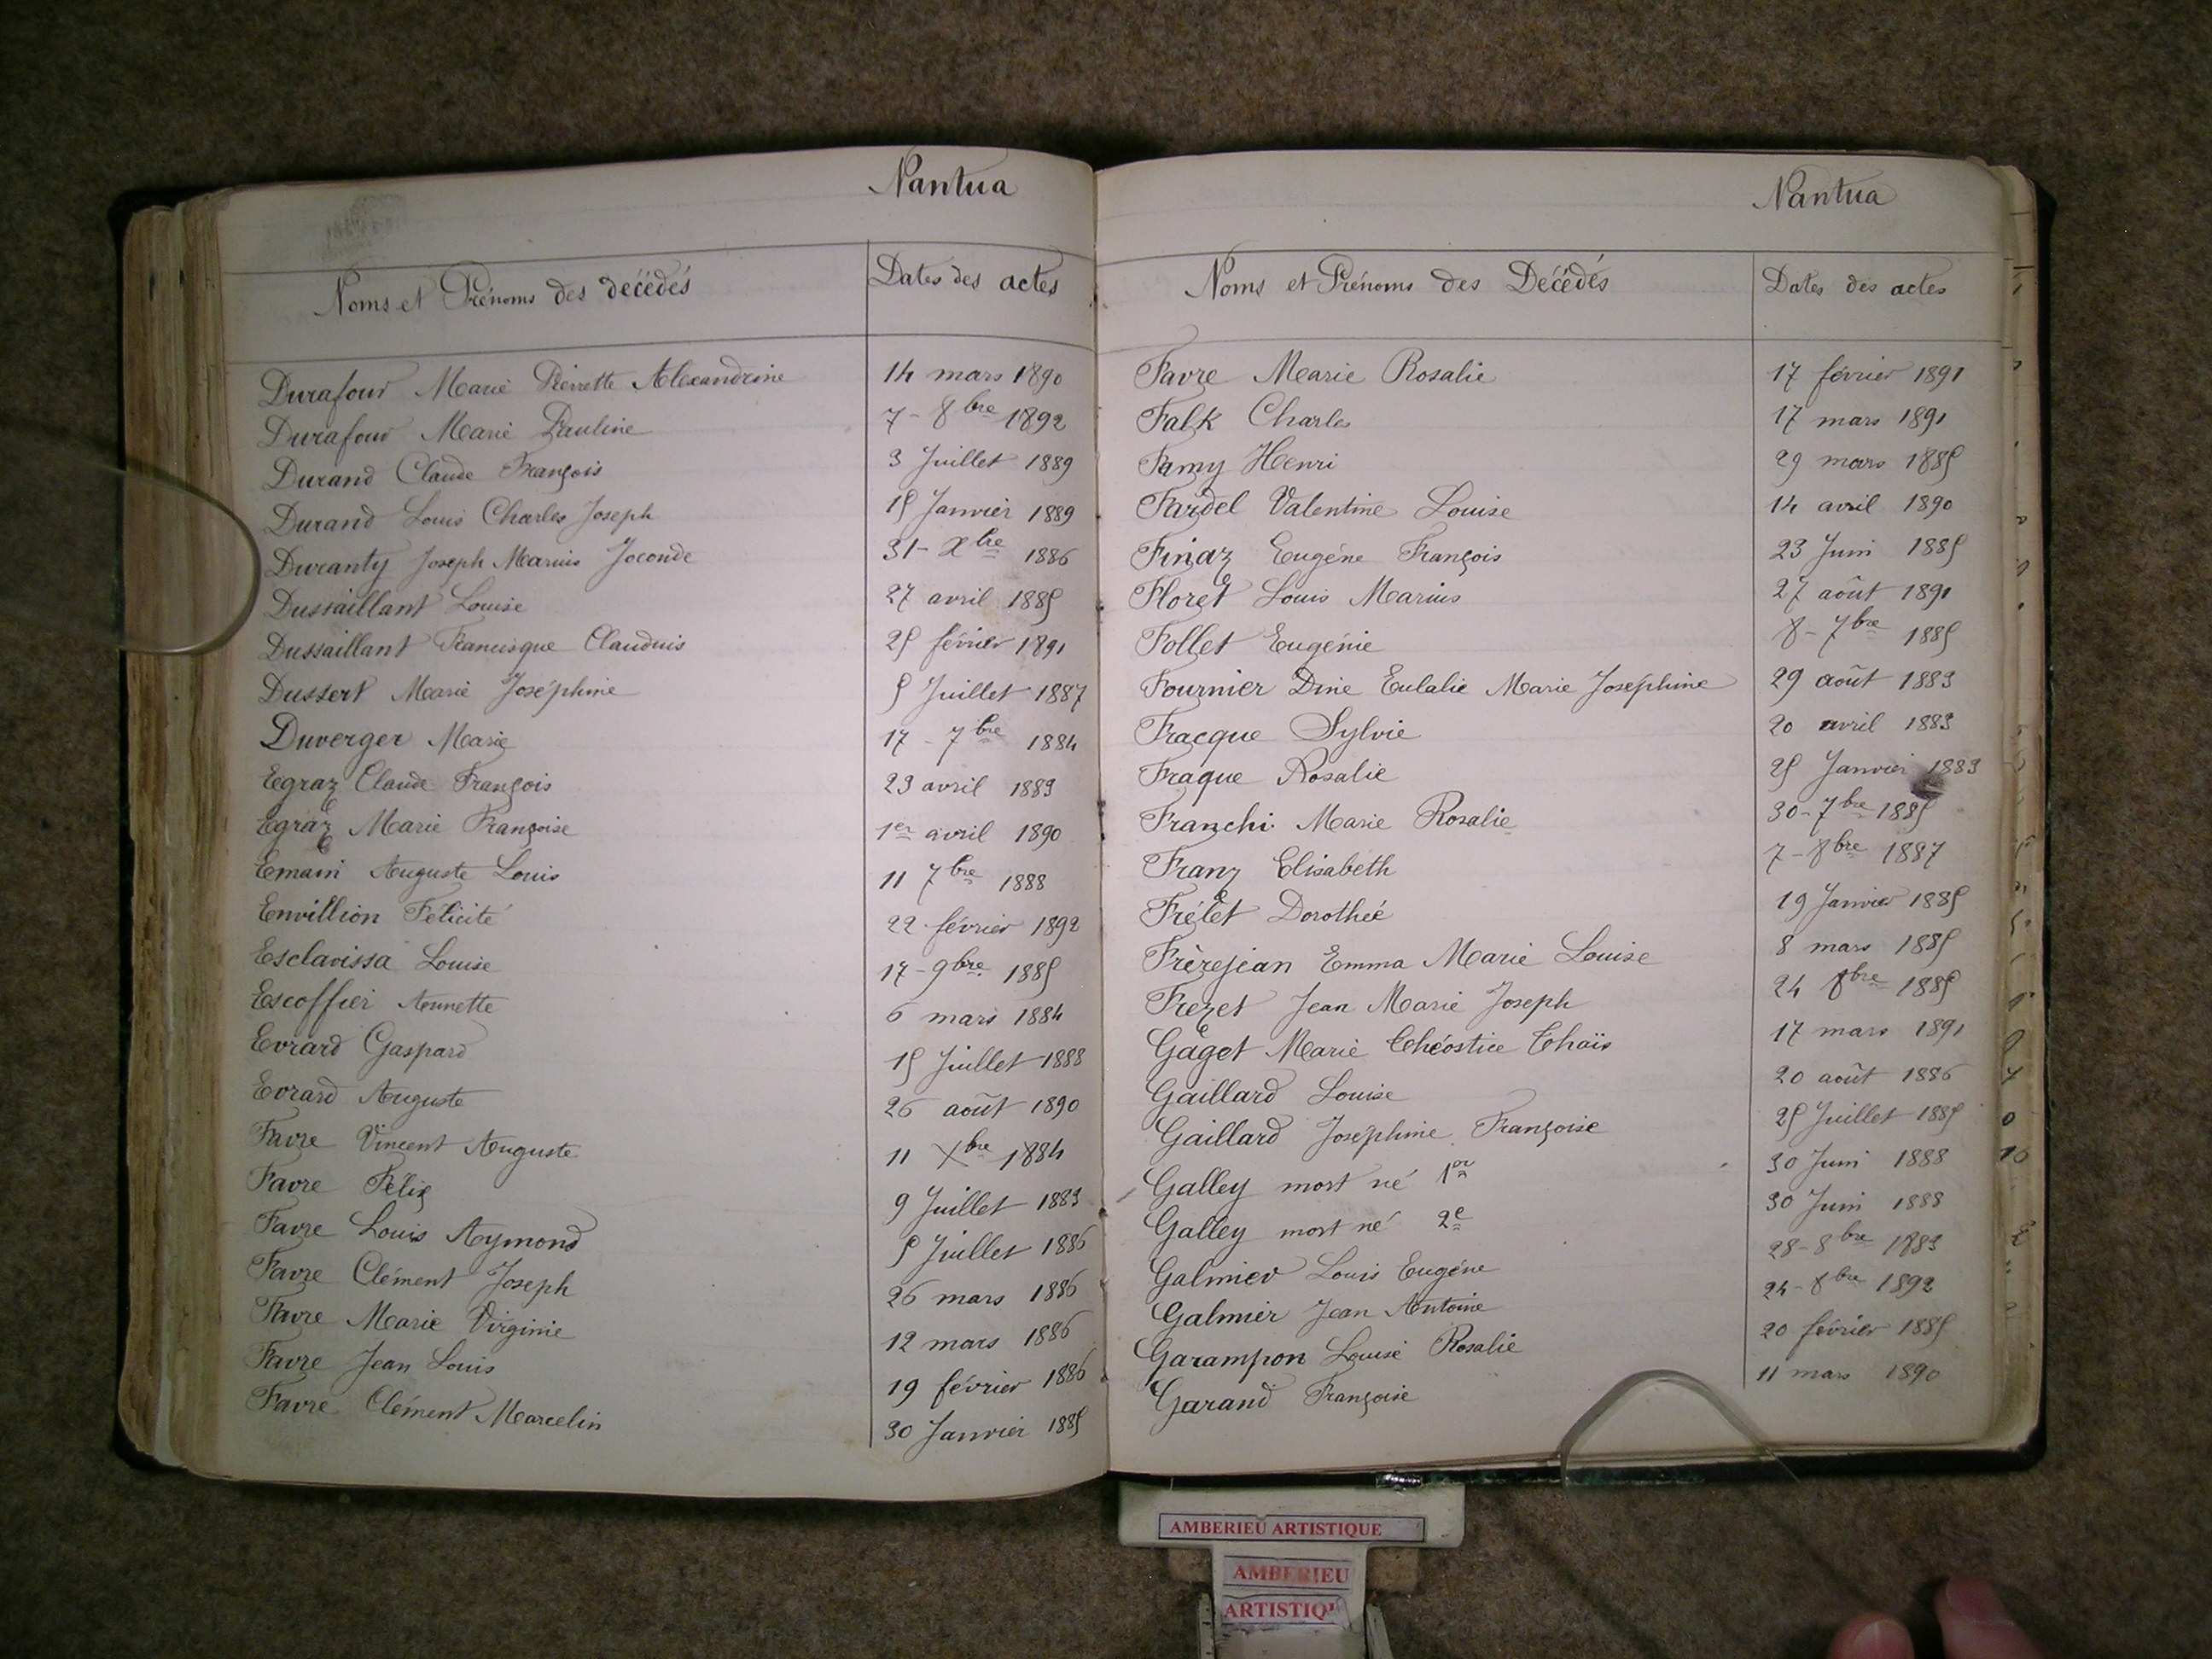 Nantua
Noms et Prénoms des décédés Dates des actes
Durafour Marie Pierrette Alexandrine 14 mars 1890
Durafour Marie Pauline 7 - 8bre 1892
Durand Claude François 3 Juillet 1889
Durand Louis Charles Joseph 15 Janvier 1889
Duranty Joseph Marius Joconde 31 - Xbre 1886
Dussaillant Louise 27 avril 1885
Dussaillant Francisque Claudius 25 février 1891
Dussert Marie Joséphine 5 Juillet 1887
Duverger Marie 17 - 7bre 1884
Egraz Claude François 23 avril 1883
Egraz Marie Françoise 1er avril 1890
Emain Auguste Louis 11 7bre 1888
Envillion Félicité 22 février 1892
Esclavissa Louise 17 - 9bre 1885
Escoffier Annette 6 mars 1884
Evrard Gaspard 15 Juillet 1888
Evrard Auguste 26 août 1890
Favre Vincent Auguste 11 Xbre 1884
Favre Félix 9 Juillet 1883
Favre Louis Aymond 5 Juillet 1886
Favre Clément Joseph 26 mars 1886
Favre Marie Virginie 12 mars 1886
Favre Jean Louis 19 février 1886
Favre Clément Marcelin 30 Janvier 1885
Nantua
Noms et Prénoms des Décédés Dates des actes
Favre Marie Rosalie 17 février 1891
Falk Charles 17 mars 1891
Famy Henri 29 mars 1885
Fardel Valentine Louise 14 avril 1890
Finaz Eugéne François 23 Juin 1885
Floret Louis Marius 27 août 1891
Follet Eugénie 8 - 7bre 1885
Fournier Dine Eulalie Marie Joséphine 29 août 1883
Fracque Sylvie 20 avril 1883
Fraque Rosalie 25 Janvier 1883
Franchi Marie Rosalie 30 - 7bre 1885
Franz Elisabeth 7 - 8bre 1887
Frélet Dorothée 19 Janvier 1885
Frèrejean Emma Marie Louise 8 mars 1885
Frezet Jean Marie Joseph 24 8bre 1885
Gaget Marie Théostice Thaïs 17 mars 1891
Gaillard Louise 20 août 1886
Gaillard Joséphine Françoise 25 Juillet 1885
Galley mort né 1er 30 Juin 1888
Galley mort né 2e 30 Juin 1888
Galmier Louis Eugéne 28 - 8bre 1883
Galmier Jean Antoine 24 - 8bre 1892
Garampon Louise Rosalie 20 février 1885
Garand Françoise 11 mars 1890
AMBERIEU ARTISTIQUE
AMBERIEU
ARTISTIQU